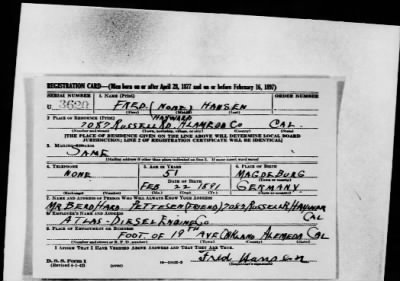 REGISTRATION CARD—(Men born on or after April 28, 1877 and on or before February 16, 1897)
SERIAL NUMBER 1. NAME (Print)
U 3620 FRED (NONE) HANSEN
(First) (Middle) (Last)
2. PLACE OF RESIDENCE (Print) HAYWARD
7087 RUSSELL RD. ALAMEDA CO CAL.
(Number and street) (Town, township, village, or city) (County) (State)
[THE PLACE OF RESIDENCE GIVEN ON THE LINE ABOVE WILL DETERMINE LOCAL BOARD
JURISDICTION; LINE 2 OF REGISTRATION CERTIFICATE WILL BE IDENTICAL]
3. MAILING ADDRESS
SAME
[Mailing address if other than place indicated on line 2. If same insert word same]
4. TELEPHONE 5. AGE IN YEARS 6. PLACE OF BIRTH
NONE 51 MAGDEBURG
DATE OF BIRTH (Town or county)
FEB 22 1891 GERMANY
(Exchange) (Number) (Mo.) (Day) (Yr.) (State or country)
7. NAME AND ADDRESS OF PERSON WHO WILL ALWAYS KNOW YOUR ADDRESS
(FRIEND) 7087 RUSSELL R. HAYWAR
8. EMPLOYER'S NAME AND ADDRESS CAL
ATLAS-DIESEL ENGINE CO
9. PLACE OF EMPLOYMENT OR BUSINESS
FOOT. OF 19TH AVE OAKLAND ALEMEDA CAL
(Number and street or R. F. D. number) (Town) (County) (State)
I AFFIRM THAT I HAVE VERIFIED ABOVE ANSWERS AND THAT THEY ARE TRUE.
D. S. S. Form 1
Fred Hansen